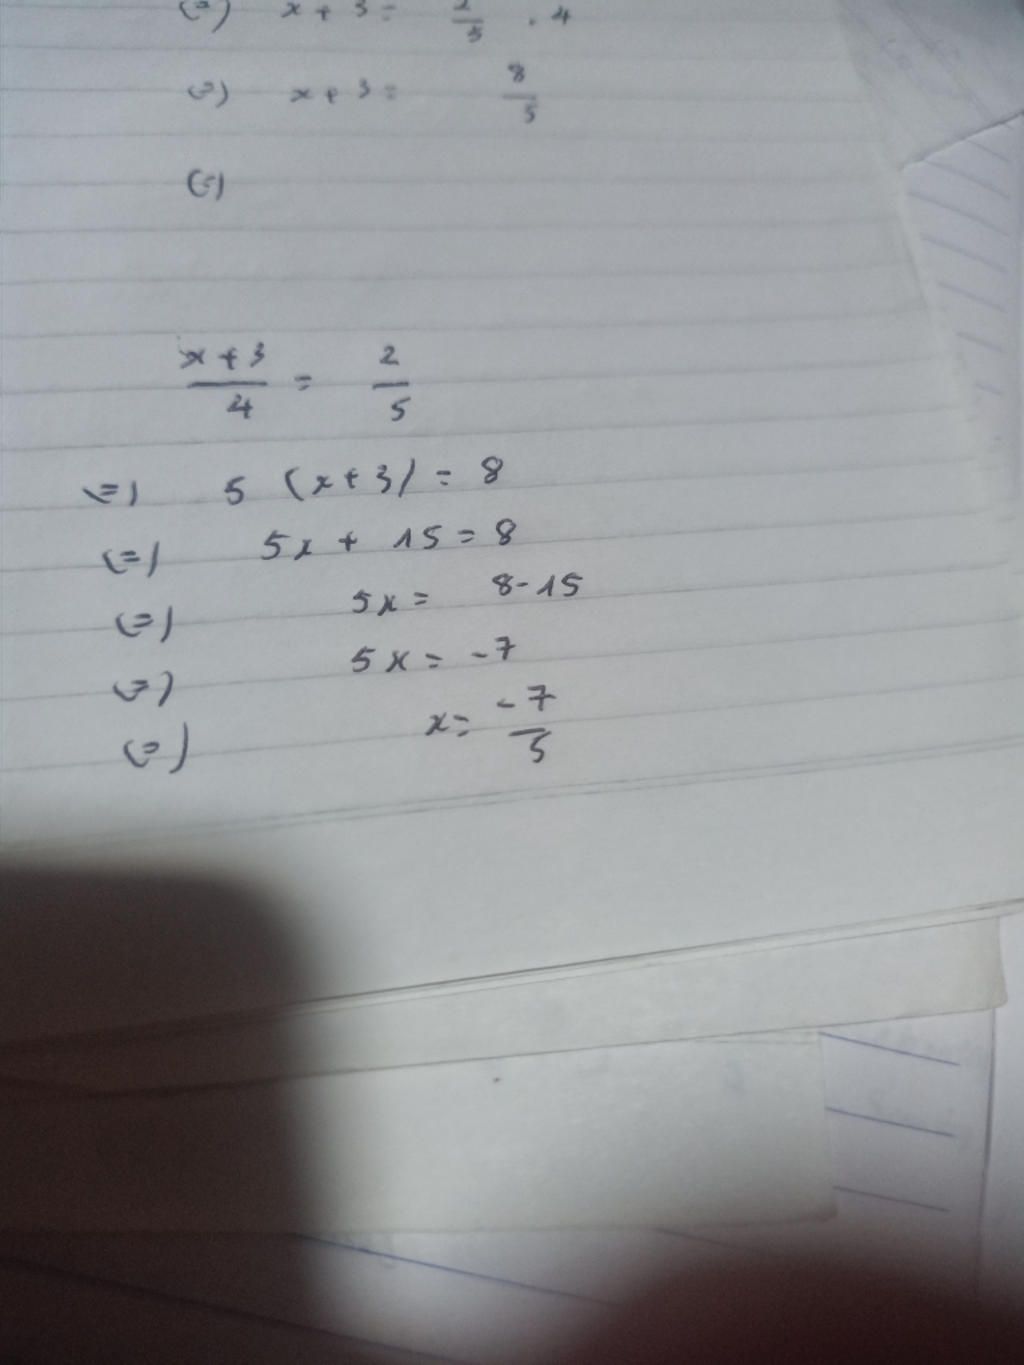 (=) x + 3 = 2/5 . 4
(=) x + 3 = 8/5
(=)
x + 3 / 4 = 2/5
(=) 5 (x + 3) = 8
(=) 5x + 15 = 8
(=) 5x = 8 - 15
(=) 5x = -7
(=) x = -7/5